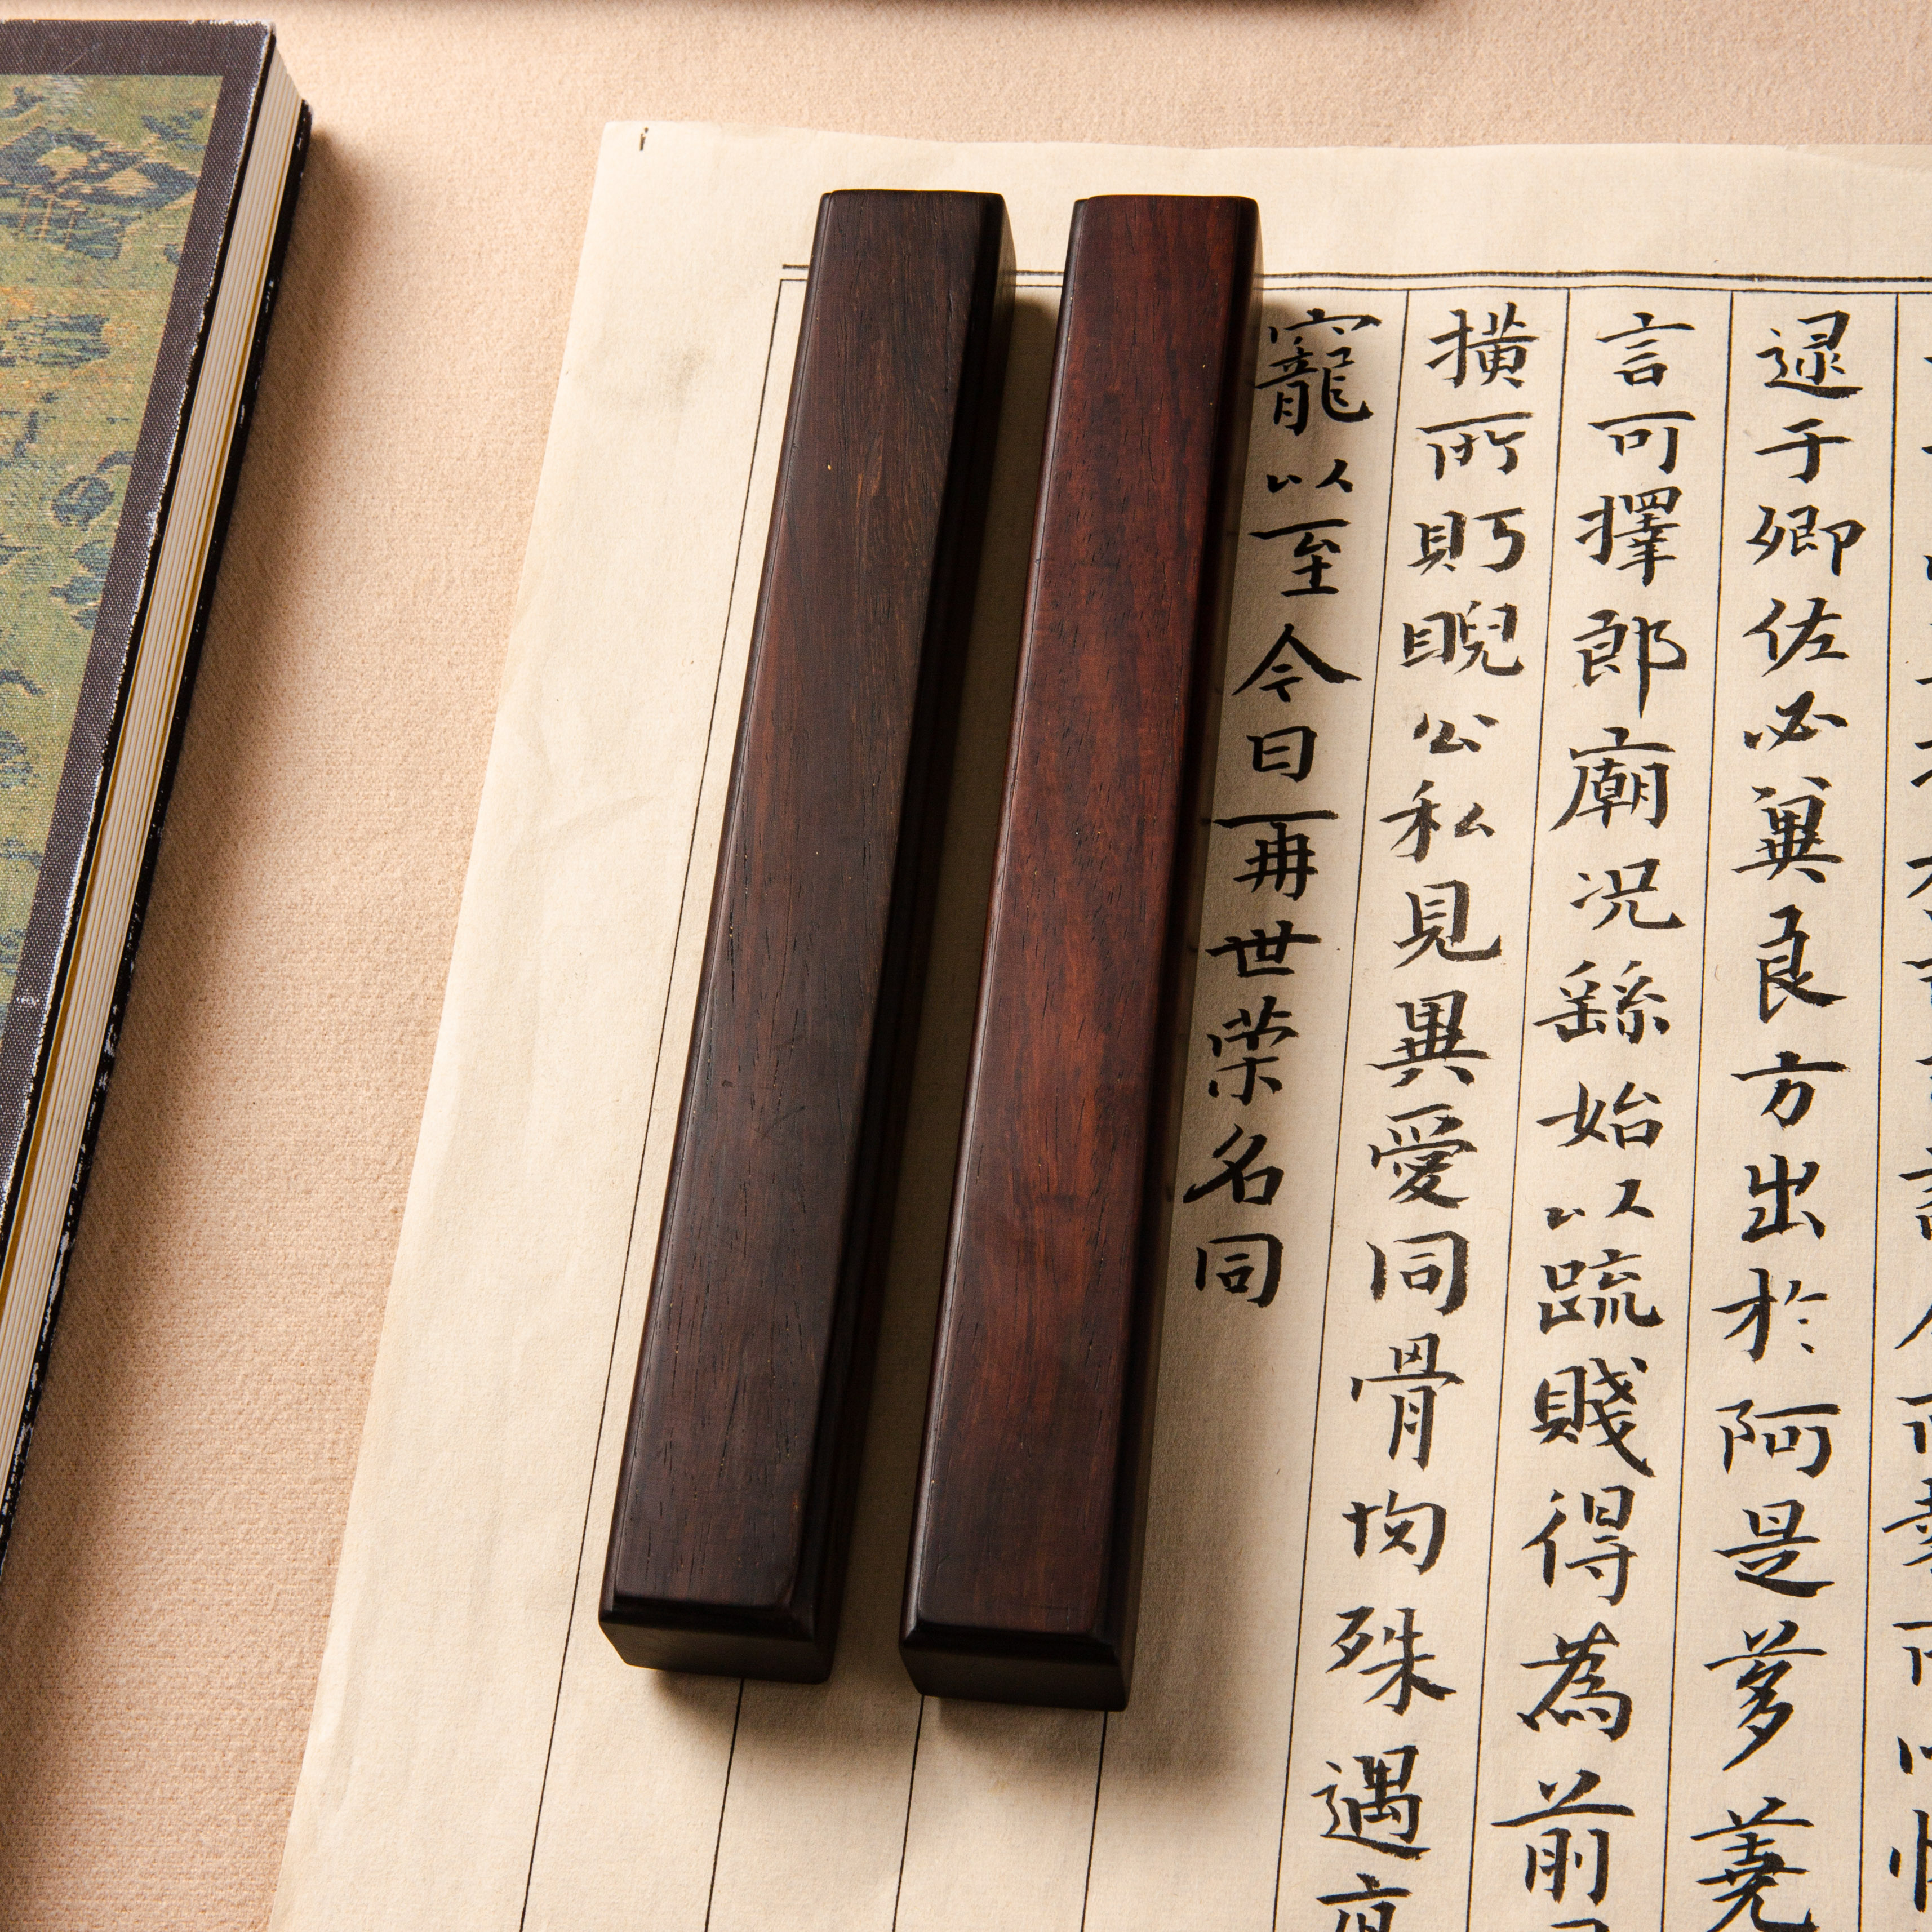 逮于卿佐必冀良方出於阿是芻蕘
言可擇郎廟況繇始以疏賤得為前
橫所眄睨公私見異愛同骨肉殊遇
寵以至今日再世榮名同